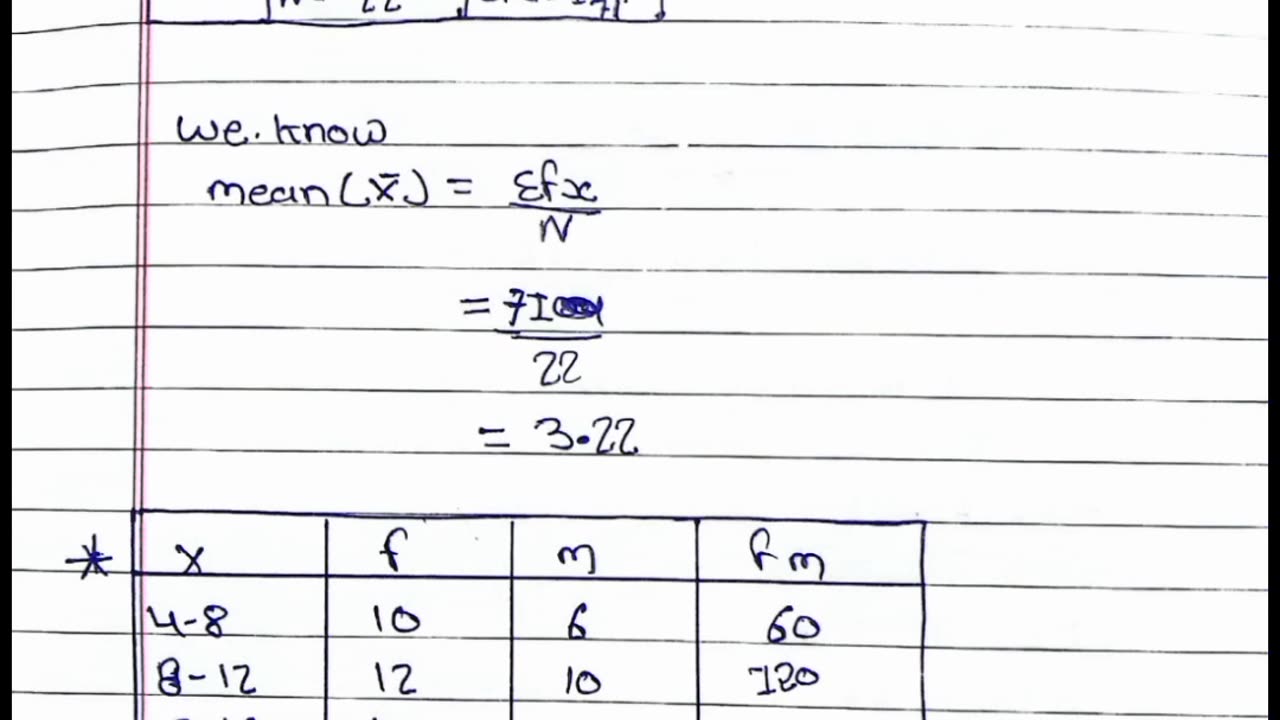 22
we. know
mean (x̄) = Σfx
N
= 71
22
= 3.22
* x f m fm
4-8 10 6 60
8-12 12 10 120